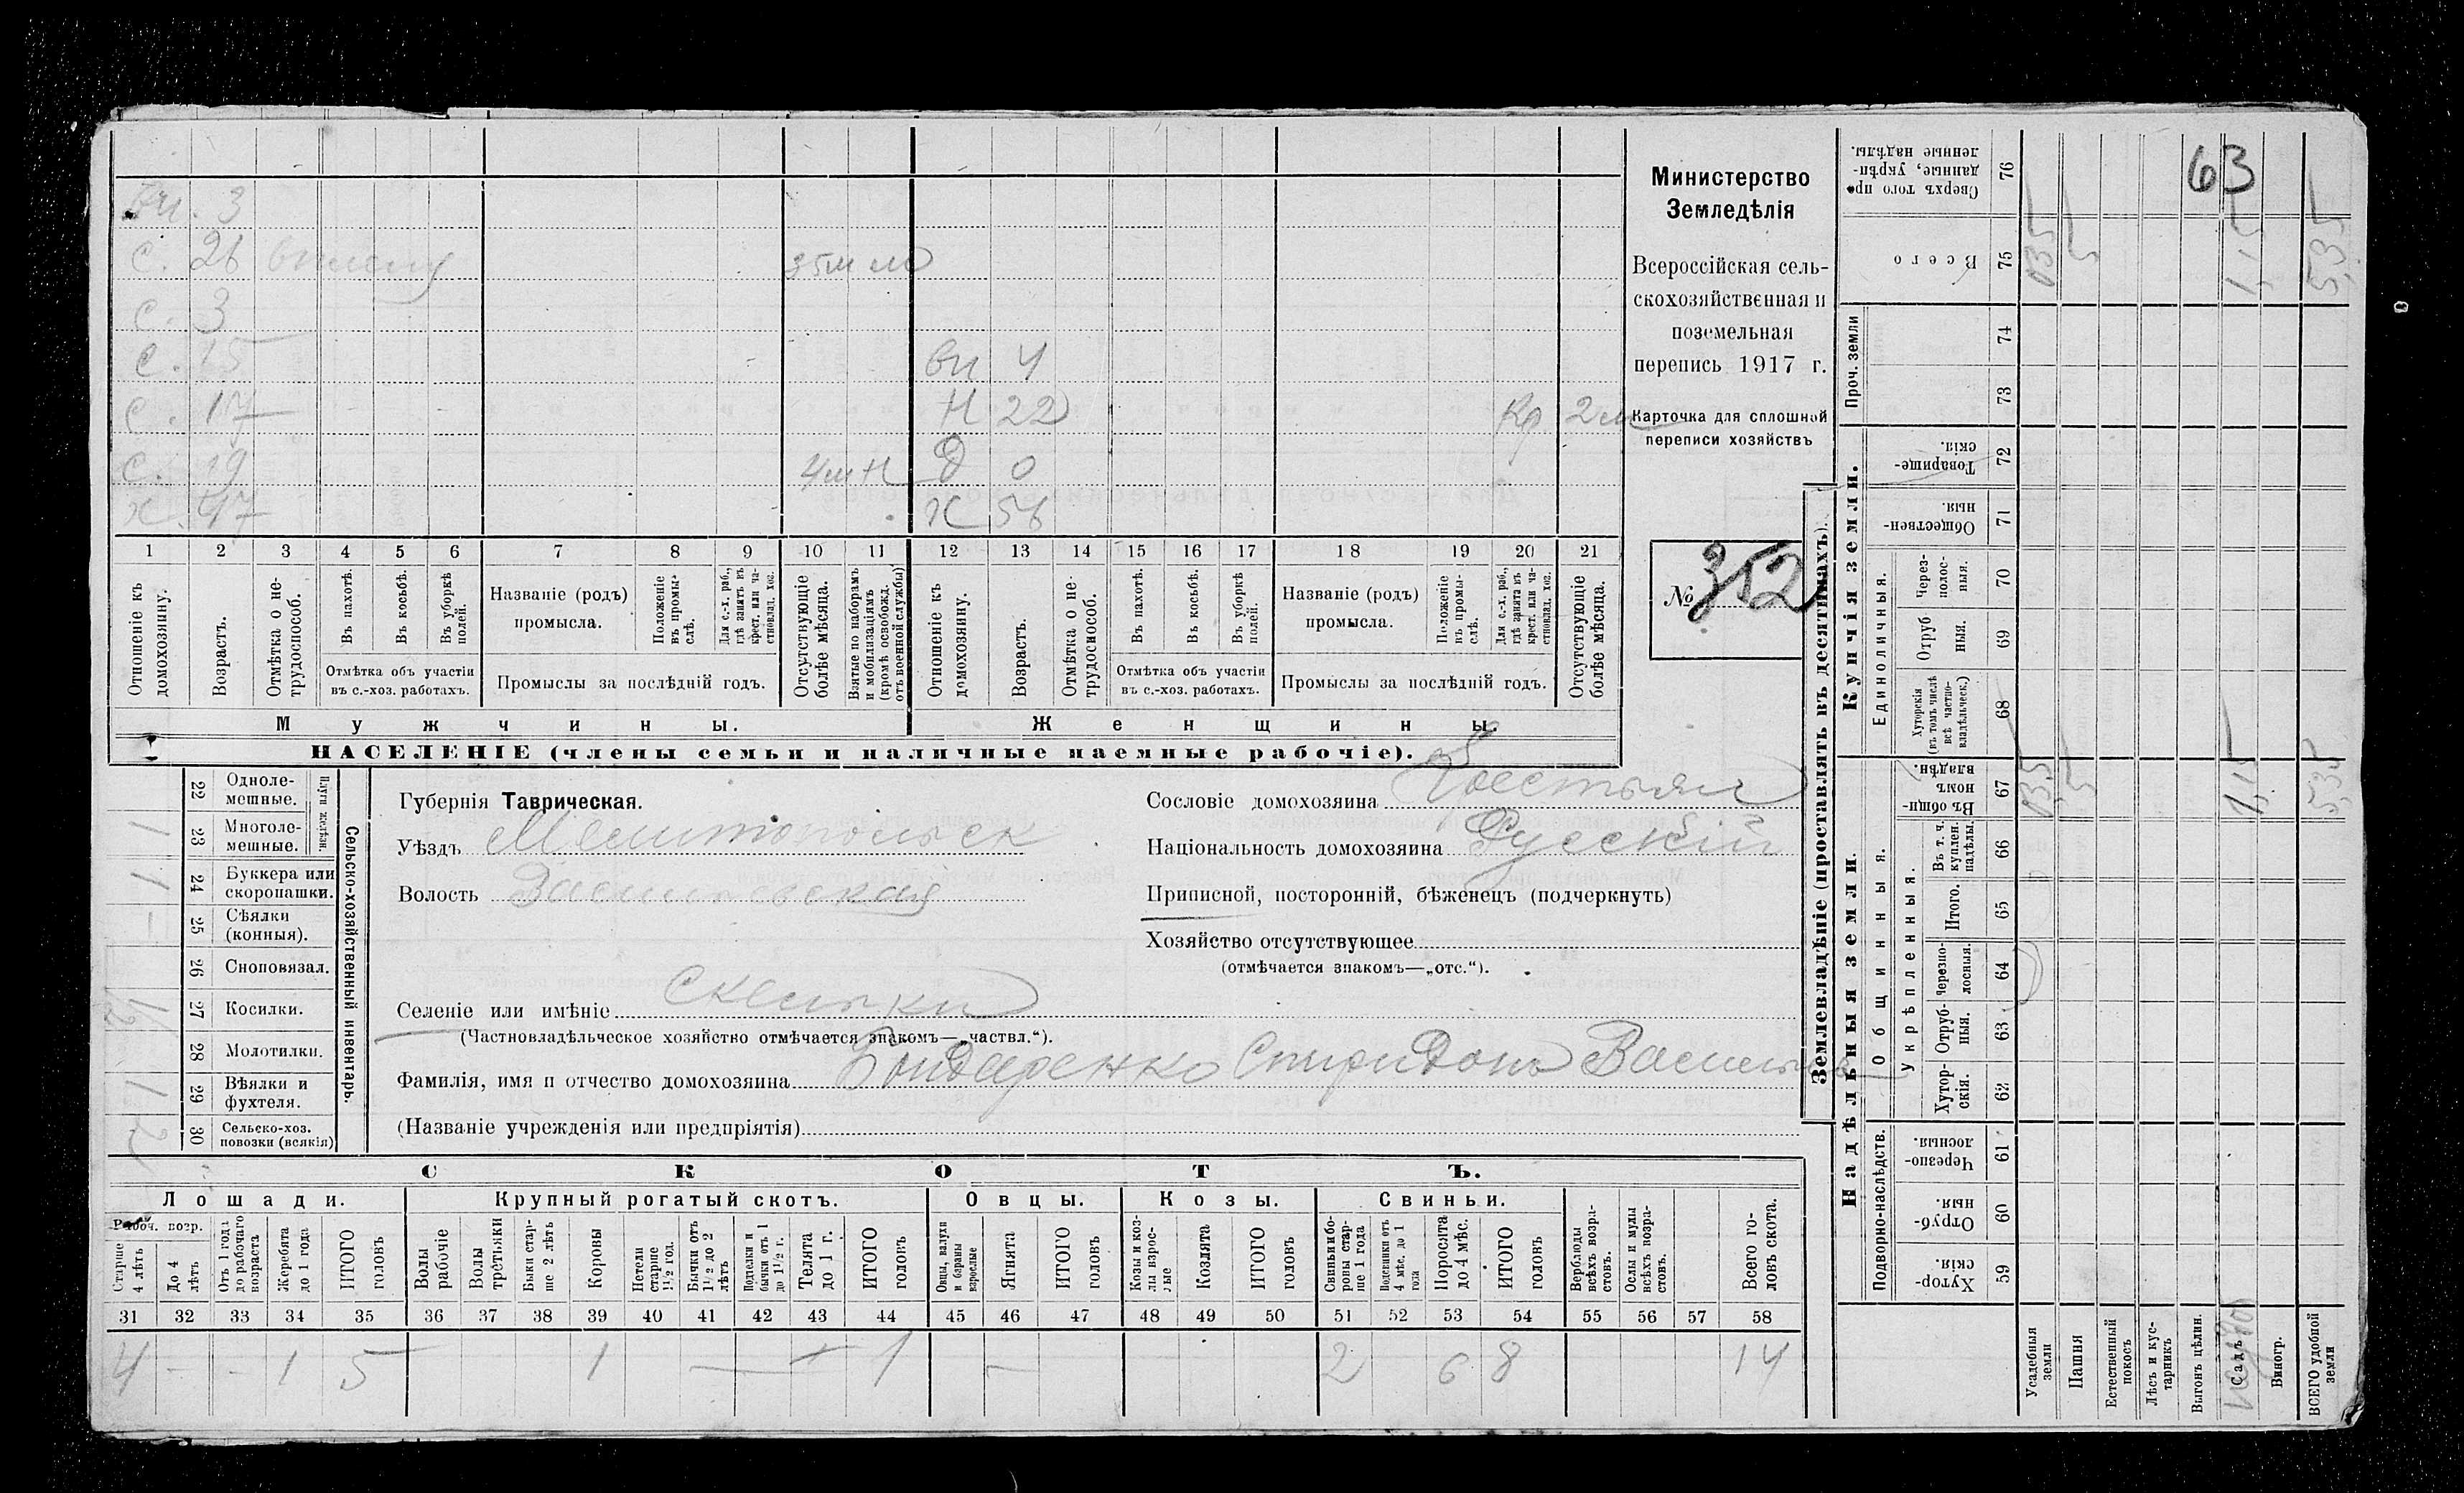 Министерство
Земледѣлія
Всероссійская сель-
скохозяйственная и
поземельная
перепись 1917 г.
Карточка для сплошной
переписи хозяйствъ
№ 352
Вн. 3
С. 26 35 м
С. 3
С. 15
вн 4
С. 17
Н 22 Кр 2 м
С. 19 4 м Н
Д 0
Х. 47
Ж 56
1 2 3 4 5 6 7 8 9 10 11 12 13 14 15 16 17 18 19 20 21
Отношеніе къ домохозяину.
Возрастъ.
Отмѣтка о не-трудоспособ.
Въ пахотѣ.
Въ косьбѣ.
Въ уборкѣ полей.
Отмѣтка объ участіи
въ с.-хоз. работахъ.
Названіе (родъ)
промысла.
Положеніе въ промы-слѣ.
Для с.-х. раб., гдѣ занятъ въ крест. или ча-стновлад. хоз.
Промыслы за послѣдній годъ.
Отсутствующіе болѣе мѣсяца.
Взятые по наборамъ и мобилизаціямъ (кромѣ освобожд. отъ военной службы)
Отношеніе къ домохозяину.
Возрастъ.
Отмѣтка о не-трудоспособ.
Въ пахотѣ.
Въ косьбѣ.
Въ уборкѣ полей.
Отмѣтка объ участіи
въ с.-хоз. работахъ.
Названіе (родъ)
промысла.
Положеніе въ промы-слѣ.
Для с.-х. раб., гдѣ занята въ крест. или ча-стновлад. хоз.
Промыслы за послѣдній годъ.
Отсутствующіе болѣе мѣсяца.
Мужчины.
Женщины.
НАСЕЛЕНІЕ (члены семьи и наличные наемные рабочіе).
Сельско-хозяйственный инвентарь.
Плуги желѣзн.
22 Одноле-мешные.
23 Многоле-мешные. 1
24 Буккера или скоропашки. 1
25 Сѣялки (конныя). 1
26 Сноповязал.
27 Косилки. 1/2
28 Молотилки.
29 Вѣялки и фухтеля. 1
30 Сельско-хоз. повозки (всякія) 2
Губернія Таврическая.
Уѣздъ Мелитопольск
Волость Васильевская
Селеніе или имѣніе Скельки
(Частновладѣльческое хозяйство отмѣчается знакомъ—„частвл.“).
Фамилія, имя и отчество домохозяина Бондаренко Спиридонъ Васильев
(Названіе учрежденія или предпріятія)
Сословіе домохозяина Крестьян
Національность домохозяина Русскій
Приписной, посторонній, бѣженецъ (подчеркнуть)
Хозяйство отсутствующее
(отмѣчается знакомъ—„отс.“).
СКОТЪ.
Лошади. Крупный рогатый скотъ. Овцы. Козы. Свиньи.
Рабоч. возр.
Старше 4 лѣтъ
До 4 лѣтъ
Отъ 1 года до рабочаго возраста
Жеребята до 1 года
ИТОГО головъ
Волы рабочіе
Волы третьяки
Быки стар-ше 2 лѣтъ
Коровы
Нетели старше 1 1/2 год.
Бычки отъ 1 1/2 до 2 лѣтъ
Подтелки и бычки отъ 1 до 1 1/2 г.
Телята до 1 г.
ИТОГО головъ
Овцы, валухи и бараны взрослые
Ягнята
ИТОГО головъ
Козы и коз-лы взрос-лые
Козлята
ИТОГО головъ
Свиньи и бо-ровы стар-ше 1 года
Подсвинки отъ 4 мѣс. до 1 года
Поросята до 4 мѣс.
ИТОГО головъ
Верблюды всѣхъ возра-стовъ.
Ослы и мулы всѣхъ возра-стовъ.
Всего го-ловъ скота.
31 32 33 34 35 36 37 38 39 40 41 42 43 44 45 46 47 48 49 50 51 52 53 54 55 56 57 58
4 - - 1 5 1 1 — 2 6 8 14
Землевладѣніе (проставлять въ десятинахъ).
Надѣльныя земли.
Купчія земли.
Проч. земли
Подворно-наслѣдств.
Общинныя.
Укрѣпленныя.
Единоличныя.
59 Хутор-скія.
60 Отруб-ныя.
61 Черезпо-лосныя.
62 Хутор-скія.
63 Отруб-ныя.
64 Черезпо-лосныя.
65 Итого.
66 Въ т. ч. куплен. надѣлы.
67 Въ общи-номъ владѣн.
68 Хуторскія (въ томъ числѣ всѣ частно-владѣльческ.)
69 Отруб ныя.
70 Через-полос-ныя.
71 Обществен-ныя.
72 Товарище-скія.
73
74
75 Всего
76 Сверхъ того про-данные, укрѣп-ленные надѣлы.
Усадебныя земли
Пашня
Естественный покосъ
Лѣсъ и кус-тарникъ
Выгонъ цѣлин.
Садъ
Виногр.
ВСЕГО удобной земли
63